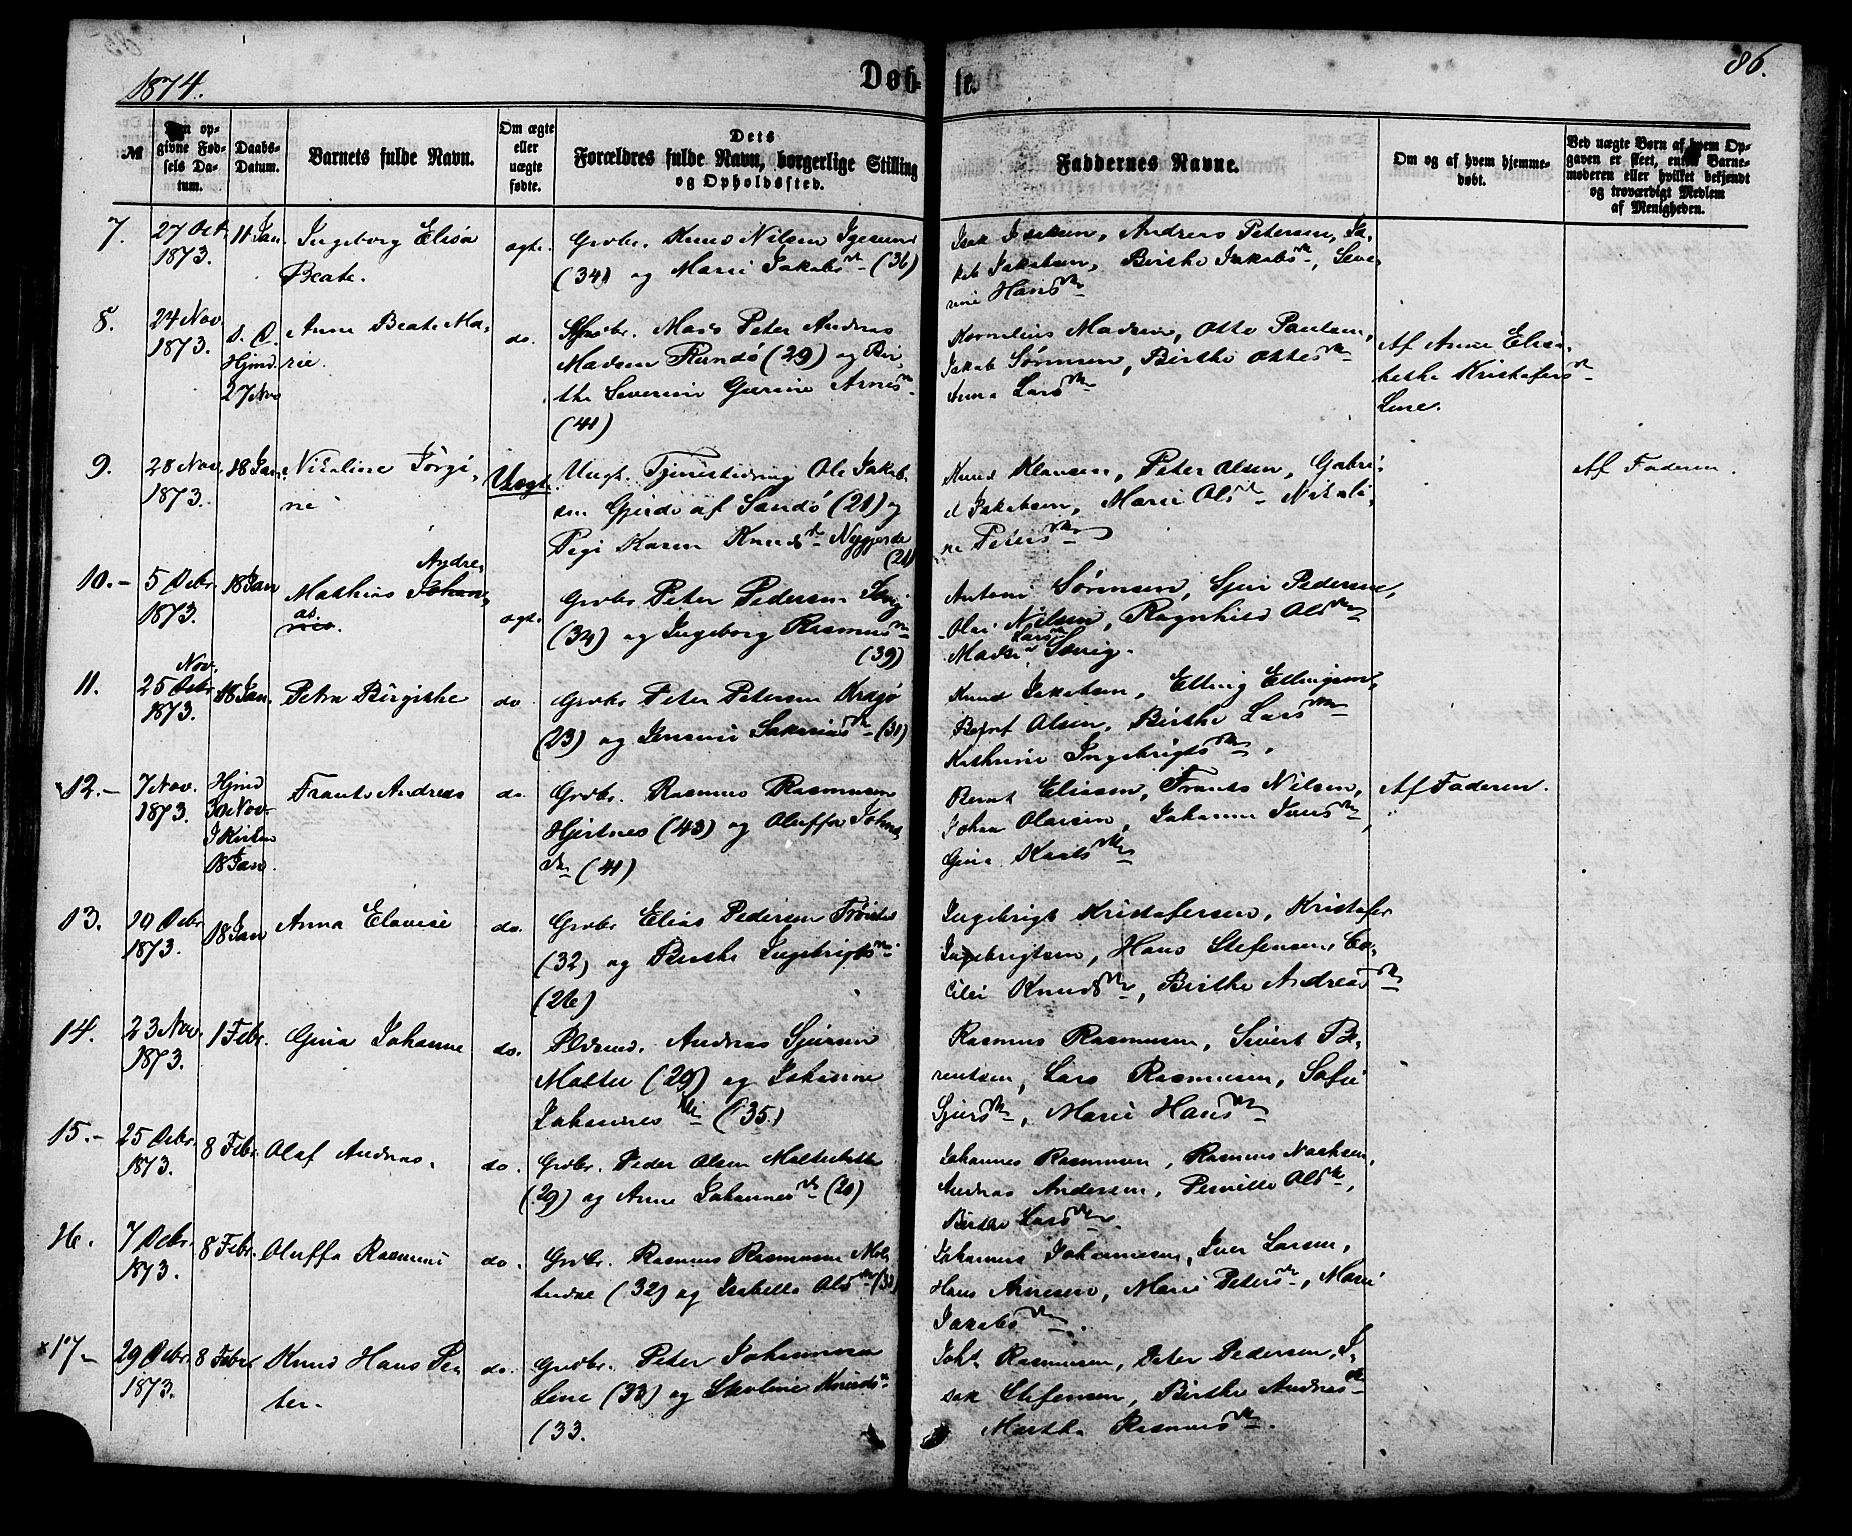 1874.
Døb-
te.
86.
№
Den op-
givne Fød-
sels Da-
tum.
Daabs-
Datum.
Barnets fulde Navn.
Om ægte
eller
uægte
fødte.
Dets
Forældres fulde Navn, borgerlige Stilling
og Opholdssted.
Faddernes Navne.
Om og af hvem hjemme-
døbt.
Ved uægte Børn af hvem Op-
gaven er skeet, enten Barne-
moderen eller hvilket bekjendt
og troværdigt Medlem
af Menigheden.
7.
27 Oct.
1873.
11 Jan.
Ingeborg Elisa
Beate.
ægte.
Grbr. Knud Nilsen Igesund
(34) og Marie Jakobsdtr (36)
Isak Isaksen, Andreas Petersen, Ja-
kob Jakobsen, Birthe Jakobsdtr, Seve-
rine Hansdtr
8.
24 Nov.
1873.
s. D.
Hjmd
27 Nov
Anne Beate Ma-
rie.
do.
Mads Peter Andreas
Madsen Rundö (29) og Bir-
the Severine Gurine Arnesdtr
(41)
Kornelius Madsen, Otto Paulsen,
Jakob Sörensen, Birthe Ottesdtr
Anna Larsdtr
Af Anne Elisa-
bethe Kristofersdtr
Lene.
9.
28 Nov.
1873.
18 Jan.
Nikoline Jörgi-
ne
Uægte.
Ungk. Tjenestedreng Ole Jakob-
sen Gjerde af Sandö (21) og
Pige Karen Knudsdtr Nygjerde
(21)
Knud Klausen, Peter Olsen, Gabri-
el Jakobsen, Marie Olsdtr Nikoli-
ne Petersdtr
Af Faderen.
10.-
5 Debr.
1873.
18 Jan
Andre-
Mathias Johan-
as.
nes.
ægte.
Grbr Peter Pedersen Sævig
(32) og Ingeborg Rasmusdtr
(39)
Antoni Sörensen, Sjur Pedersen,
Olai Nilsen, Ragnhild Olsdtr
Larsdtr
Madse Sævig.
11.
Nov.
25 Debr
1873.
18 Jan.
Petra Birgithe
do
Grbr Peter Petersen Kvasjö
(23) og Jensine Sakariasdtr (31)
Knud Jakobsen, Elling Ellingsen,
Olsen, Birthe Larsdtr
Kathrine Ingebrigtsdtr.
x12.-
7 Nov.
1873.
Hjmd
30 Nov.
I Kirken
18 Jan.
Frants Andreas
do
Grbr. Rasmus Rasmusen
Hjertnes (43) og Oluffa Johns
dtr (41)
Bernt Eliasen, Frants Nilsen,
Johan Olavsen, Johanne Iversdtr,
Gina Karlsdtr
Af Faderen.
13.
19 Debr
1873.
18 Jan
Anna Elovise
do.
Grbr Elias Pedersen Tröites
(32) og Birthe Ingebrigtsdtr
(26)
Ingebrigt Kristofersen, Kristofer
Ingebrigtsen, Hans Stefensen, Ce-
cilei Knudsdtr, Birthe Andreasdtr
14.
23 Nov.
1873.
1 Febr.
Gina Johanne
do.
Andreas Sjursen
Molter (29) og Johanne
Johannesdtr (35)
Rasmus Rasmusen, Sivert Be-
rentsen, Lars Rasmusen, Sofie
Sjursdtr, Marie Hansdtr
15.-
25 Debr.
1873.
8 Febr.
Olaf Andreas.
do.
Grbr. Peder Olsen Moltesletten
(29) og Anne Johannesdtr (20)
Johannes Rasmusen, Rasmus Noahsen,
Andreas Andersen, Pernille Olsdtr,
Birthe Larsdtr.
16.
7 Debr.
1873.
8 Febr.
Oluffa Rasmine
do.
Grbr. Rasmus Rasmusen Mol-
(32) og Isabelle Olsdtr (33)
Johannes Johannesen, Iver Larsen,
Hans Arnesen, Marie Petersdtr, Marie
Jakobsdtr.
x17-
29 Debr.
1873.
8 Febr
Knud Hans Pe-
ter.
do.
Grbr. Peter Johannesen
Lene (33) og Skoline Knudsdtr
(33.
Johs Rasmusen, Peter Pedersen, I-
sak Stefensen, Birthe Andreasdtr
Martha Rasmusdtr.